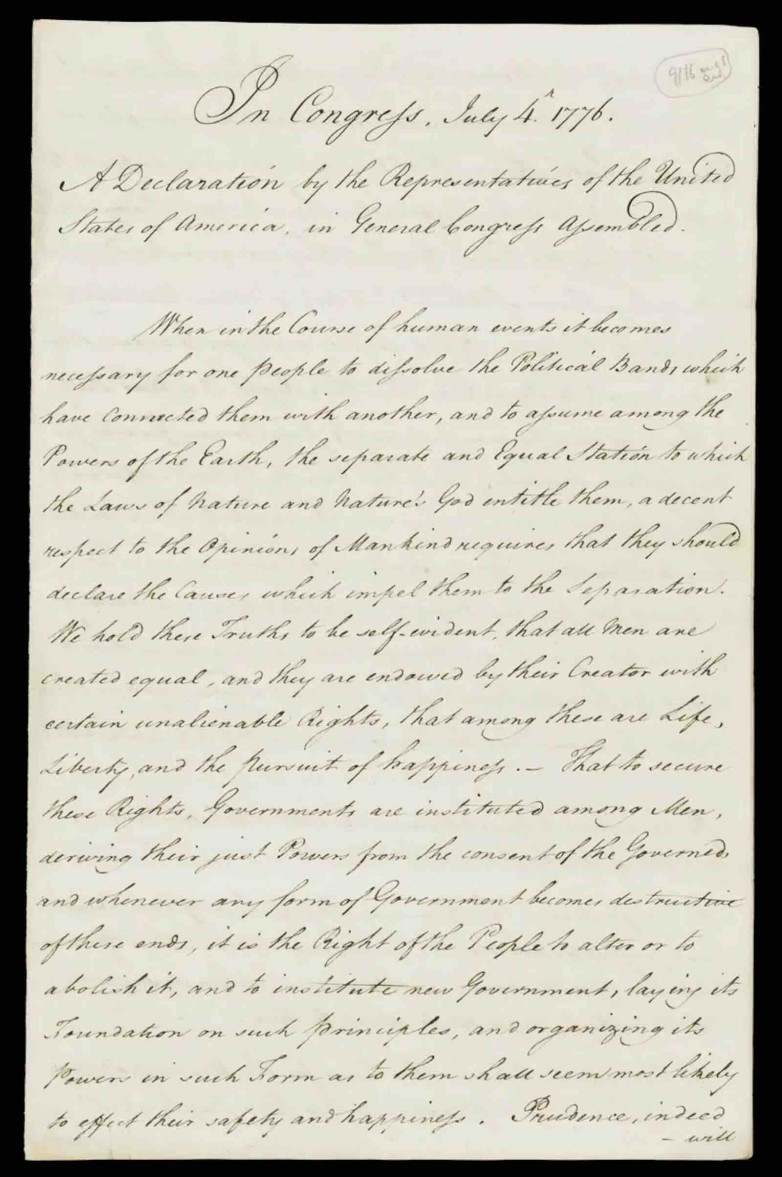 In Congress, July 4. 1776.
A Declaration by the Representatives of the United
States of America, in General Congress Assembled.
When in the Course of human events it becomes
necessary for one people to dissolve the Political Bands which
have connected them with another, and to assume among the
Powers of the Earth, the separate and Equal Station to which
the Laws of Nature and Nature's God entitle them, a decent
respect to the Opinions of Mankind requires that they should
declare the Causes which impel them to the Separation.
We hold these Truths to be self-evident, that all Men are
created equal, and they are endowed by their Creator with
certain unalienable Rights, that among these are Life,
Liberty, and the pursuit of happiness. — That to secure
these Rights, Governments are instituted among Men,
deriving their just Powers from the consent of the Governed,
and whenever any form of Government becomes destructive
of these ends, it is the Right of the People to alter or to
abolish it, and to institute new Government, laying its
Foundation on such principles, and organizing its
Powers in such Form as to them shall seem most likely
to effect their safety and happiness. Prudence, indeed
– will